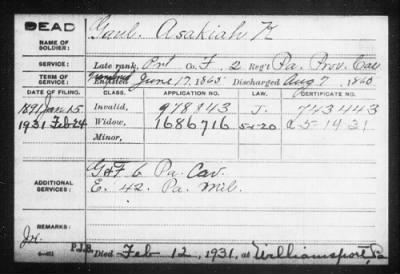 DEAD
NAME OF SOLDIER: Gaul. Asakiah K
SERVICE: Late rank, Prt Co. F. 2 Reg't Pa. Prov. Cav.
TERM OF SERVICE: Enlisted June 17, 1865 Discharged Aug 7, 1865
DATE OF FILING. CLASS. APPLICATION NO. LAW. CERTIFICATE NO.
1891 Jan 15 Invalid, 978843 J. 743443
1931 Feb 24 Widow, 1686716 5-1-20 25-14-31
Minor,
ADDITIONAL SERVICES: G & F 6 Pa. Cav.
E. 42. Pa. Mil.
REMARKS:
Jr.
P.J.B. Died Feb 12, 1931, at Williamsport, Pa